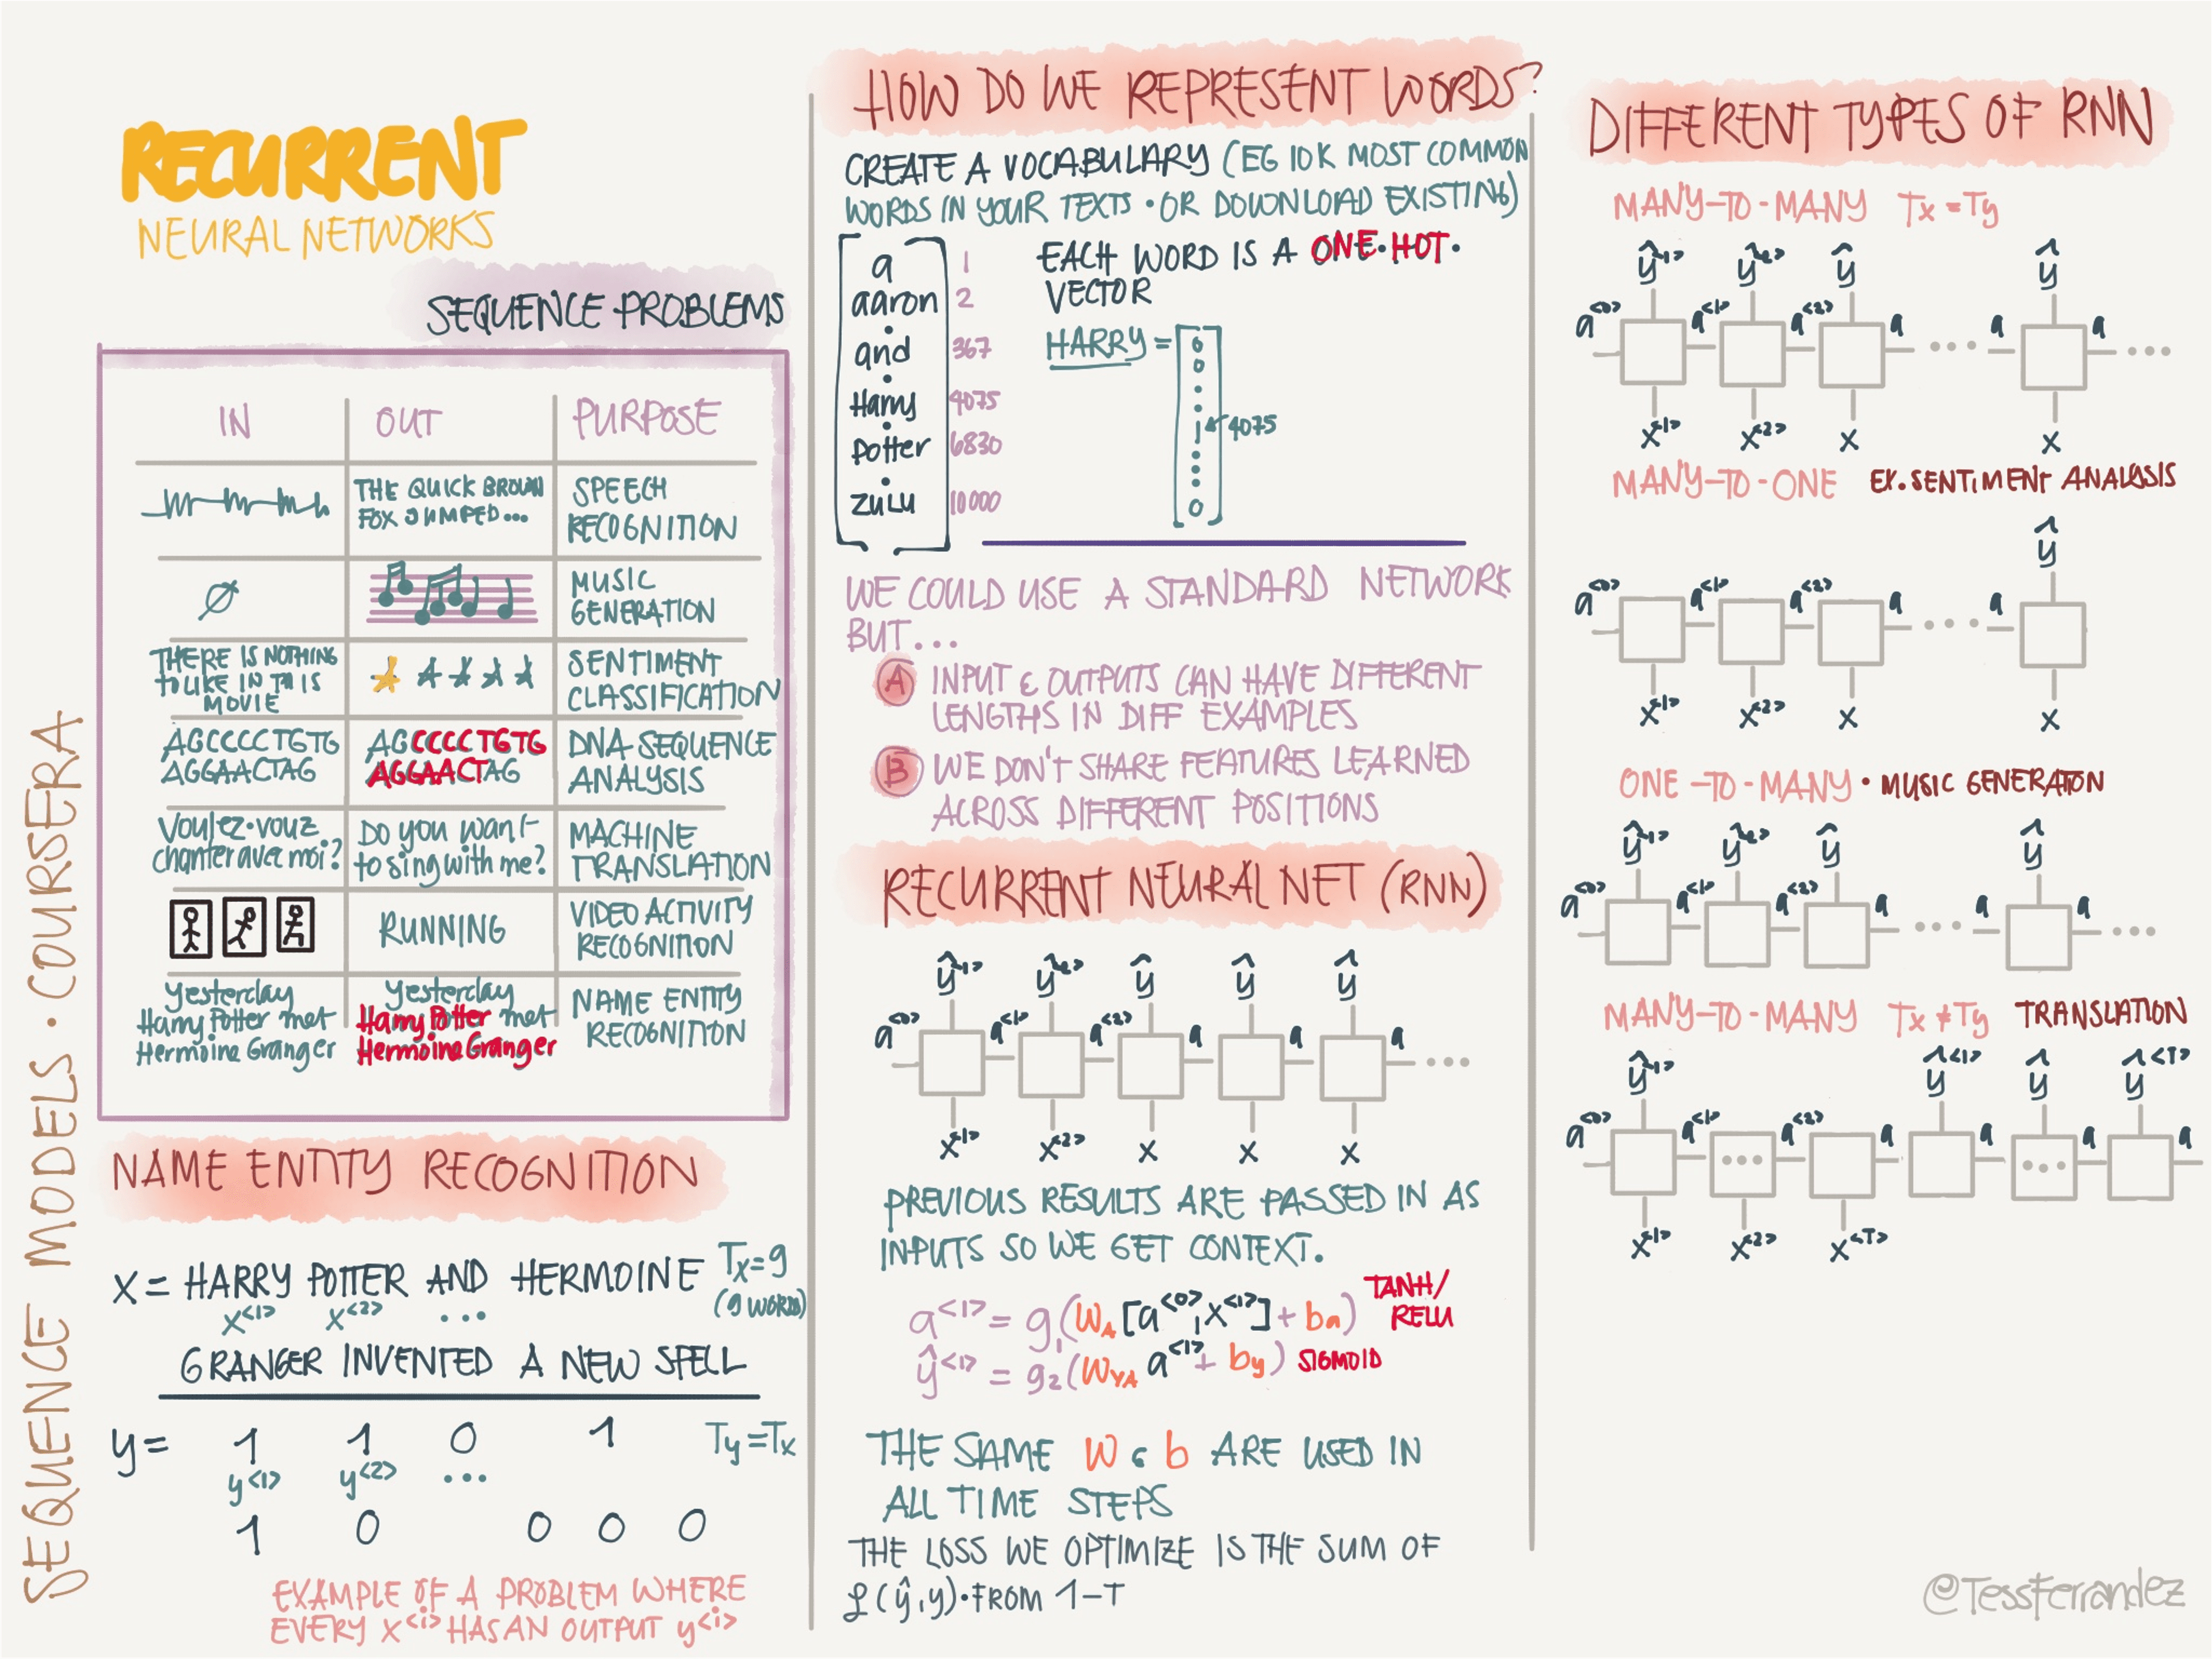 RECURRENT
NEURAL NETWORKS
SEQUENCE PROBLEMS
IN OUT PURPOSE
THE QUICK BROWN
FOX JUMPED...
SPEECH
RECOGNITION
∅
MUSIC
GENERATION
THERE IS NOTHING
TO LIKE IN THIS
MOVIE
SENTIMENT
CLASSIFICATION
AGCCCCTGTG
AGGAACTAG
AGCCCCTGTG
AGGAACTAG
DNA SEQUENCE
ANALYSIS
Voulez-vouz
chanter avec moi?
Do you want
to sing with me?
MACHINE
TRANSLATION
RUNNING
VIDEO ACTIVITY
RECOGNITION
Yesterday
Harry Potter met
Hermoine Granger
Yesterday
Harry Potter met
Hermoine Granger
NAME ENTITY
RECOGNITION
SEQUENCE MODELS · COURSERA
NAME ENTITY RECOGNITION
X = HARRY POTTER AND HERMOINE Tx=9
x<1> x<2> ... (9 WORDS)
GRANGER INVENTED A NEW SPELL
y = 1 1 0 1 Ty=Tx
y<1> y<2> ...
1 0 0 0 0
EXAMPLE OF A PROBLEM WHERE
EVERY x<i> HAS AN OUTPUT y<i>
HOW DO WE REPRESENT WORDS?
CREATE A VOCABULARY (EG 10K MOST COMMON
WORDS IN YOUR TEXTS · OR DOWNLOAD EXISTING)
a 1
aaron 2
and 367
Harry 4075
Potter 6830
zulu 10000
EACH WORD IS A ONE·HOT·
VECTOR
HARRY =
0
0
1 4075
0
WE COULD USE A STANDARD NETWORK
BUT...
A INPUT & OUTPUTS CAN HAVE DIFFERENT
LENGTHS IN DIFF EXAMPLES
B WE DON'T SHARE FEATURES LEARNED
ACROSS DIFFERENT POSITIONS
RECURRENT NEURAL NET (RNN)
ŷ<1> ŷ<2> ŷ ŷ ŷ
a<0> a<1> a<2> a a a ...
x<1> x<2> x x x
PREVIOUS RESULTS ARE PASSED IN AS
INPUTS SO WE GET CONTEXT.
a<1> = g₁(WA[a<0>,x<1>] + ba) TANH/
RELU
ŷ<1> = g₂(WYA a<1> + by) SIGMOID
THE SAME W & b ARE USED IN
ALL TIME STEPS
THE LOSS WE OPTIMIZE IS THE SUM OF
ℒ(ŷ,y)·FROM 1-T
DIFFERENT TYPES OF RNN
MANY-TO-MANY Tx=Ty
ŷ<1> ŷ<2> ŷ ŷ
a<0> a<1> a<2> a ... a a ...
x<1> x<2> x x
MANY-TO-ONE EX. SENTIMENT ANALYSIS
ŷ
a<0> a<1> a<2> a ... a
x<1> x<2> x x
ONE-TO-MANY · MUSIC GENERATON
ŷ<1> ŷ<2> ŷ ŷ
a<0> a<1> a<2> a ... a a ...
MANY-TO-MANY Tx≠Ty TRANSLATION
ŷ<1> ŷ<1> ŷ ŷ<T>
a<0> a<1> ... a<2> a a ... a a
x<1> x<2> x<T>
@TessFerrandez